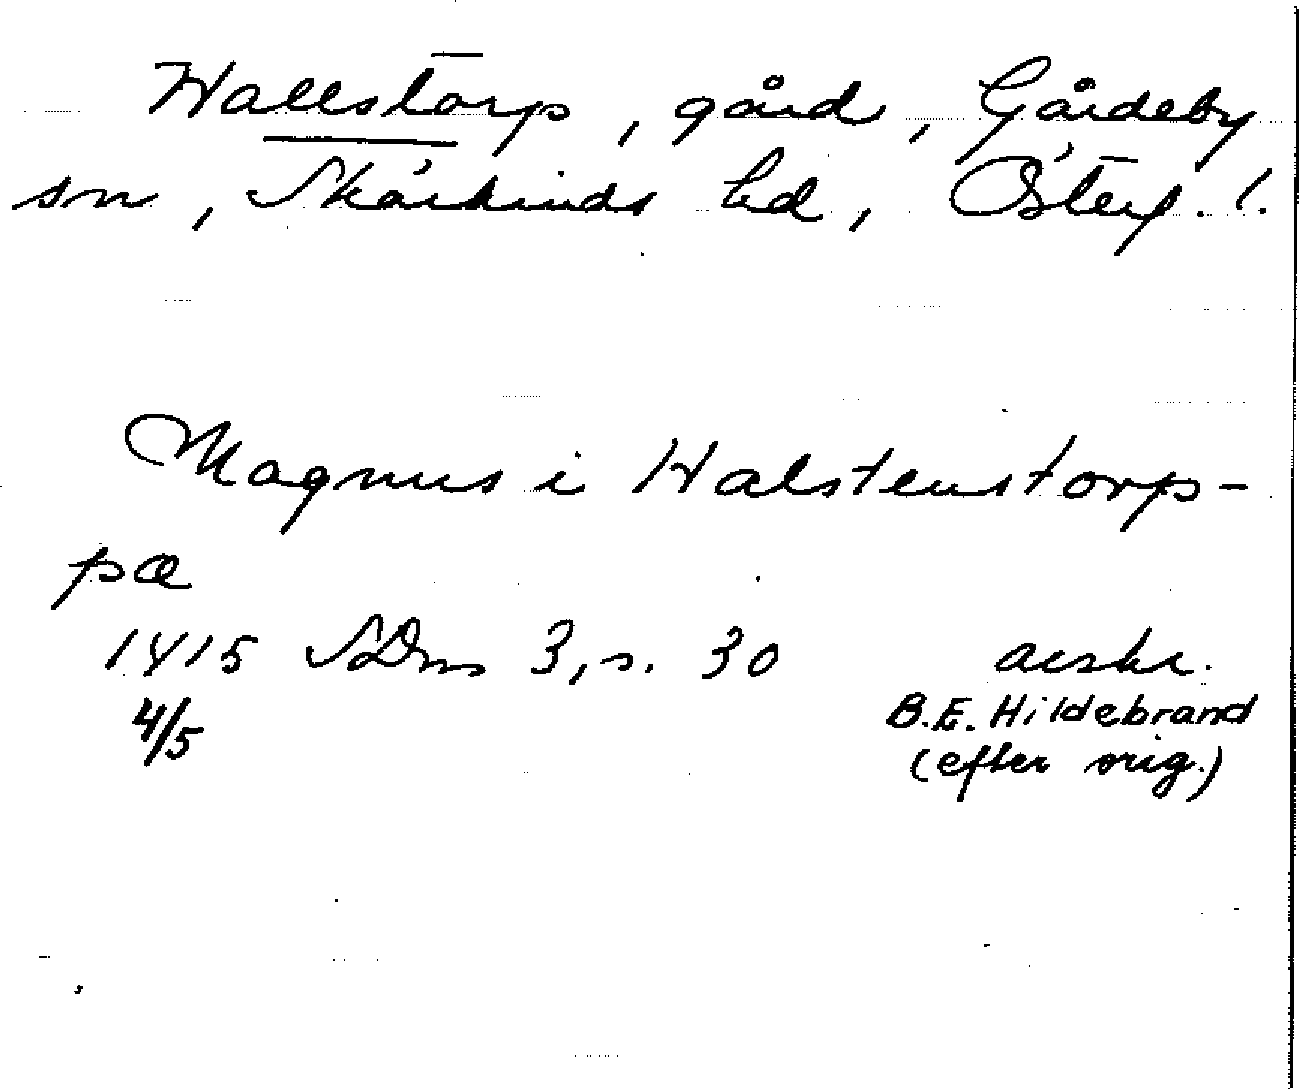 Hallstorp, gård, Gårdeby
sn, Skärkinds hd, Österg. l.
Magnus i Halstenstorp-
pa
1415 SDns 3, s. 30 avskr.
4/5 B.E. Hildebrand
(efter orig.)